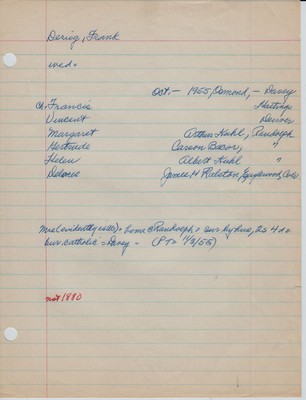 Dering, Frank
wed.
Oct. - 1955, Osmond, - Davey
Ch. Francis Hastings
Vincent Denver
Margaret Arthur Kuhl, Randolph
Gertrude Carson Bacon, "
Helen Albert Kuhl "
Delores James H Ralston Englewood, Colo
Mrs (evidently) Home Randolph, sur by hus, 2s 4 d
bur. catholic - Davey -
not 1880